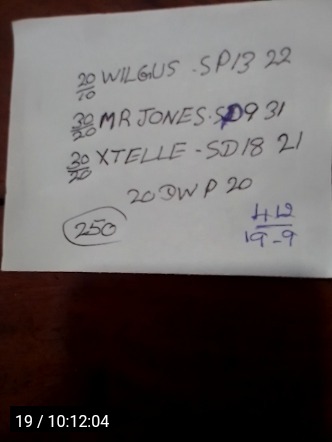 20/10 WILGUS . SP13 22
30/20 MR JONES. SD9 31
30/20 XTELLE - SD18 21
20 DWP 20
250
42
19-9
19 / 10:12:04